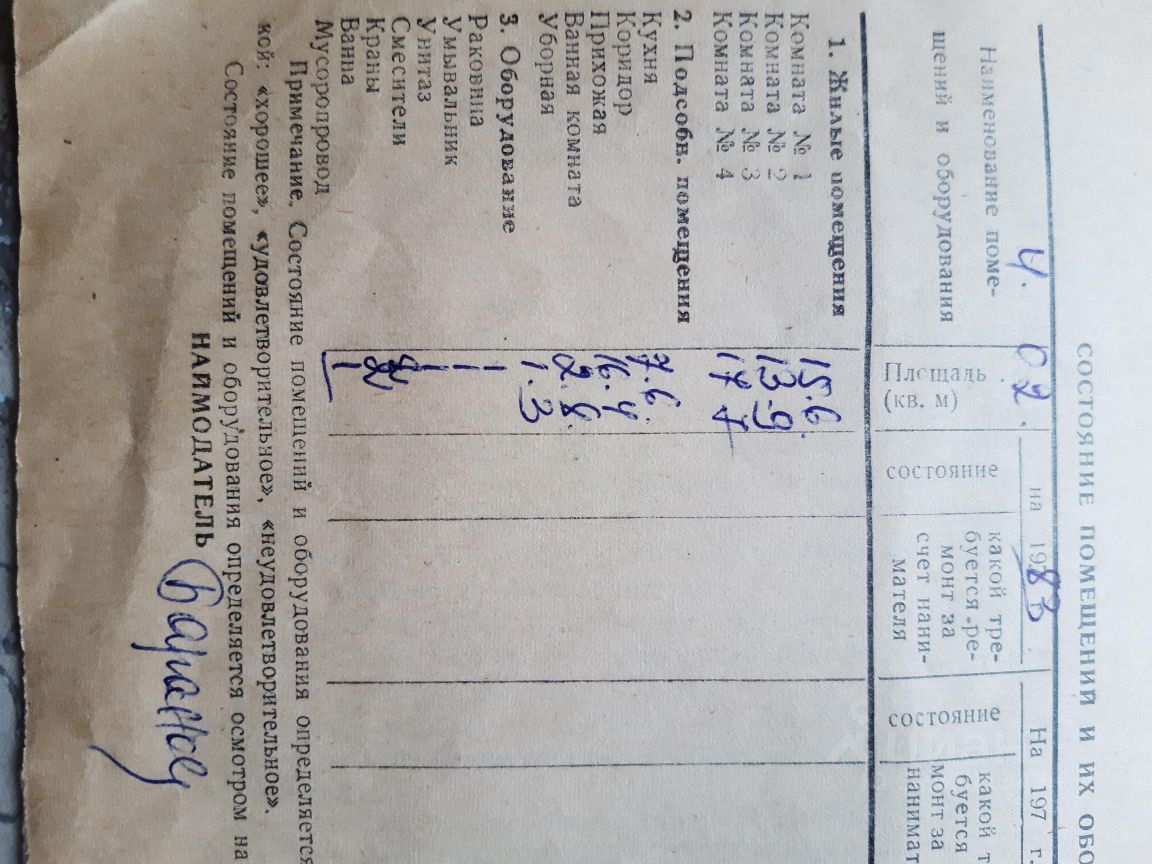 СОСТОЯНИЕ ПОМЕЩЕНИЙ И ИХ ОБО
4. 02. на 1983 г.
На 197 г.
Наименование поме-
щений и оборудования
Площадь
(кв. м)
состояние
какой тре-
буется ре-
монт за
счет нани-
мателя
состояние
какой т
буется
монт за
нанимат
1. Жилые помещения
Комната № 1 15.6.
Комната № 2 13.9
Комната № 3
Комната № 4 17.4
2. Подсобн. помещения
Кухня 7.6.
Коридор
Прихожая 16.4
Ванная комната 2.8.
Уборная 1.3
3. Оборудование
Раковина 1
Умывальник 1
Унитаз 1
Смесители 2
Краны 2
Ванна 1
Мусоропровод
Примечание. Состояние помещений и оборудования определяется
кой: «хорошее», «удовлетворительное», «неудовлетворительное».
Состояние помещений и оборудования определяется осмотром на
НАЙМОДАТЕЛЬ